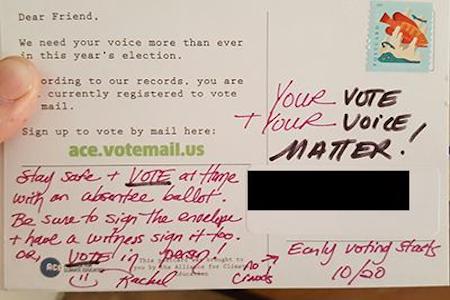 Dear Friend,
We need your voice more than ever
in this year's election.
ording to our records, you are
currently registered to vote
mail.
Sign up to vote by mail here:
ace.votemail.us
Stay safe + VOTE at Home
with an absentee ballot.
Be sure to sign the envelope
+ have a witness sign it too.
or, VOTE in person!
Rachel
no
Crowds
ACE
This postcard was brought to
you by the Alliance for Climate
Education
POSTCARD
YOUR VOTE
+ YOUR VOICE
MATTER!
Early voting starts
10/20